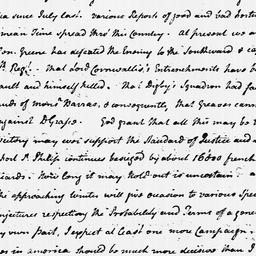 ia since July last. various Reports of good and bad fortu
mean Time spread thro' this Country. At present we a
Gen. Greene has defeated the Enemy to the Southward & ca
Regt. That Lord Cornwallis's Entrenchments have b
ault and himself killed. That Digby's Squadron had fa
ands of monsr. Barras, & consequently, that Greaves cann
against DGrasse. God grant that all this may be t
victory may ever support the Standard of Justice and
Fort St. Philip continues besieged by about 16000 french
iards. How long it may hold out is uncertain. a
the approaching winter will give occasion to various Spec
onjectures respecting the Probability and Terms of a gene
my own Part, I expect at least one more Campaign.
es in america should be much more decisive than I